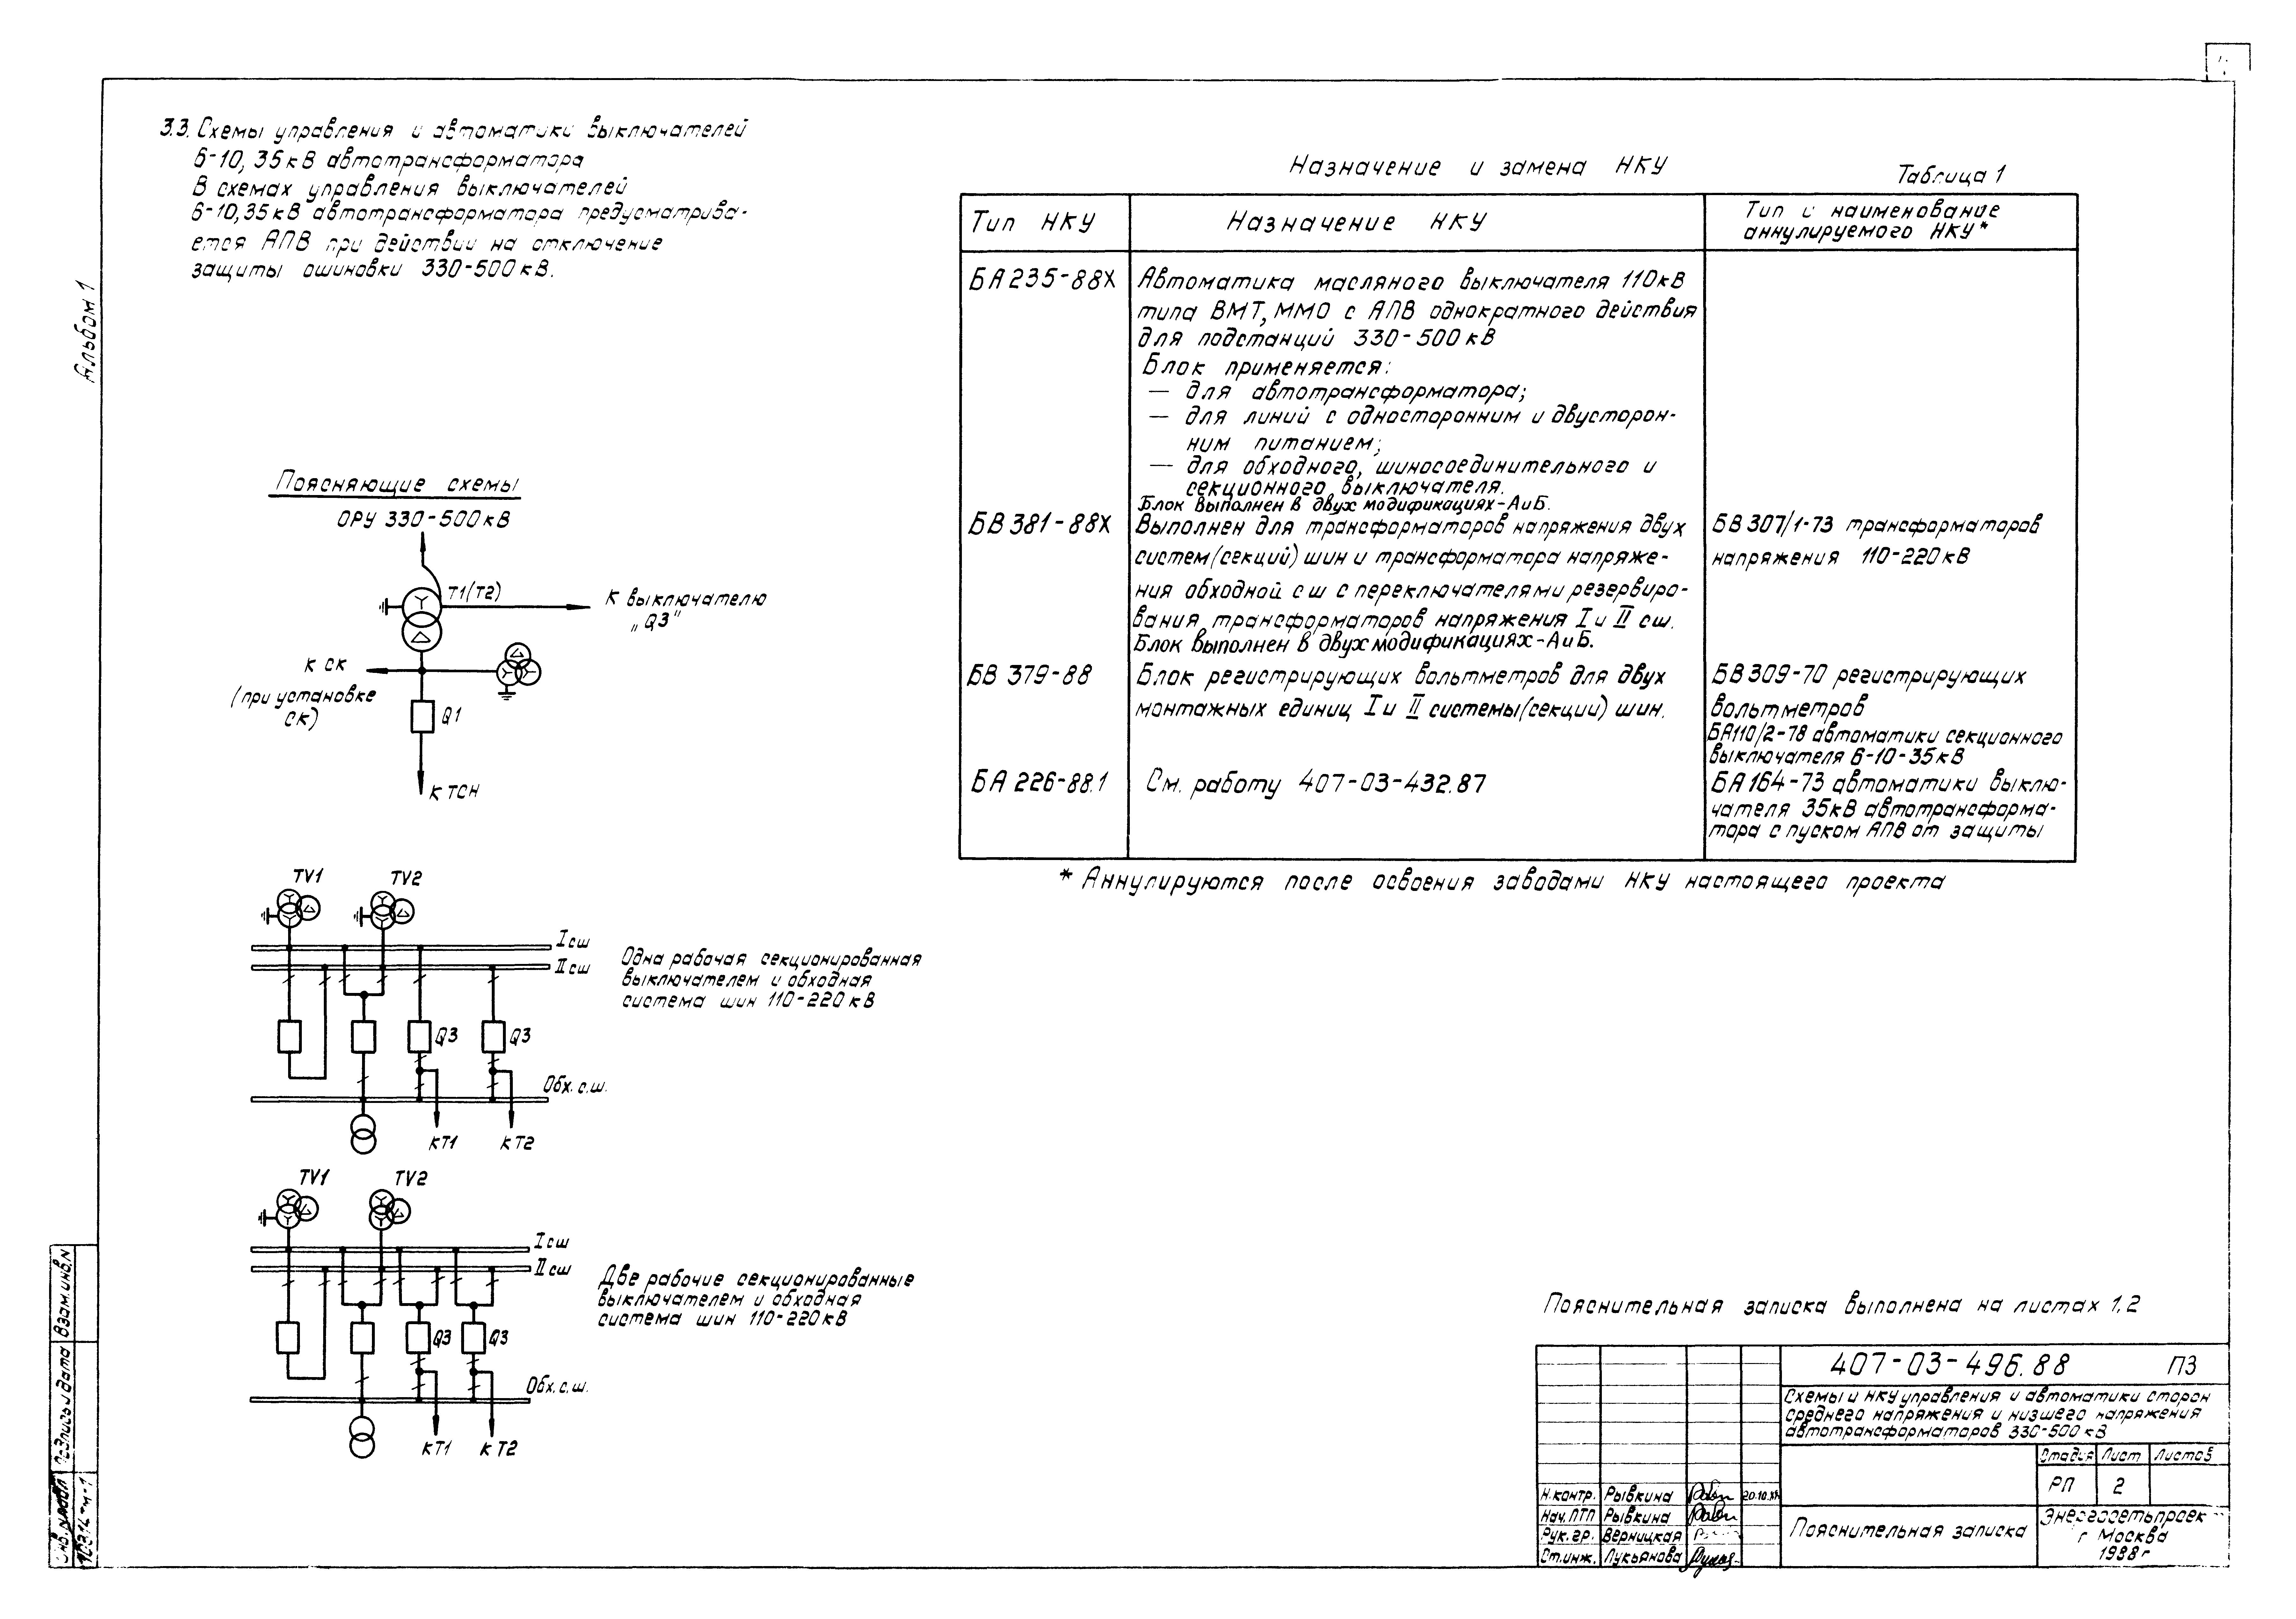 3.3. Схемы управления и автоматики выключателей
6-10, 35 кВ автотрансформатора
В схемах управления выключателей
6-10, 35 кВ автотрансформатора предусматрива-
ется АПВ при действии на отключение
защиты ошиновки 330-500 кВ.
Альбом 1
Поясняющие схемы
ОРУ 330-500 кВ
Т1(Т2)
К выключателю
„Q3"
К СК
(при установке
СК)
Q1
К ТСН
TV1 TV2
I сш
II сш
Одна рабочая секционированная
выключателем и обходная
система шин 110-220 кВ
Q3 Q3
Обх. с.ш.
К Т1 К Т2
TV1 TV2
I сш
II сш
Две рабочие секционированные
выключателем и обходная
система шин 110-220 кВ
Q3 Q3
Обх. с.ш.
К Т1 К Т2
Назначение и замена НКУ
Таблица 1
Тип НКУ
Назначение НКУ
Тип и наименование
аннулируемого НКУ*
БА 235-88Х
Автоматика масляного выключателя 110 кВ
типа ВМТ, ММО с АПВ однократного действия
для подстанций 330-500 кВ
Блок применяется:
— для автотрансформатора;
— для линий с односторонним и двусторон-
ним питанием;
— для обходного, шиносоединительного и
секционного выключателя.
Блок выполнен в двух модификациях-А и Б.
БВ 381-88Х
Выполнен для трансформаторов напряжения двух
систем (секций) шин и трансформатора напряже-
ния обходной сш с переключателями резервиро-
вания трансформаторов напряжения I и II сш.
Блок выполнен в двух модификациях-А и Б.
БВ 307/1-73 трансформаторов
напряжения 110-220 кВ
БВ 379-88
Блок регистрирующих вольтметров для двух
монтажных единиц I и II системы (секции) шин.
БВ 309-70 регистрирующих
вольтметров
БА110/2-78 автоматики секционного
выключателя 6-10-35 кВ
БА 226-88.1
См. работу 407-03-432.87
БА 164-73 автоматики выклю-
чателя 35 кВ автотрансформа-
тора с пуском АПВ от защиты
* Аннулируются после освоения заводами НКУ настоящего проекта
Пояснительная записка выполнена на листах 1, 2
407-03-496.88 ПЗ
Схемы и НКУ управления и автоматики сторон
среднего напряжения и низшего напряжения
автотрансформаторов 330-500 кВ
Стадия Лист Листов
РП 2
Н. контр. Рывкина
Нач. ПТП Рывкина
Рук. гр. Верницкая
Ст. инж. Лукьянова
Пояснительная записка
Энергосетьпроект
г Москва
1988 г
Взам. инв. N
Подпись и дата